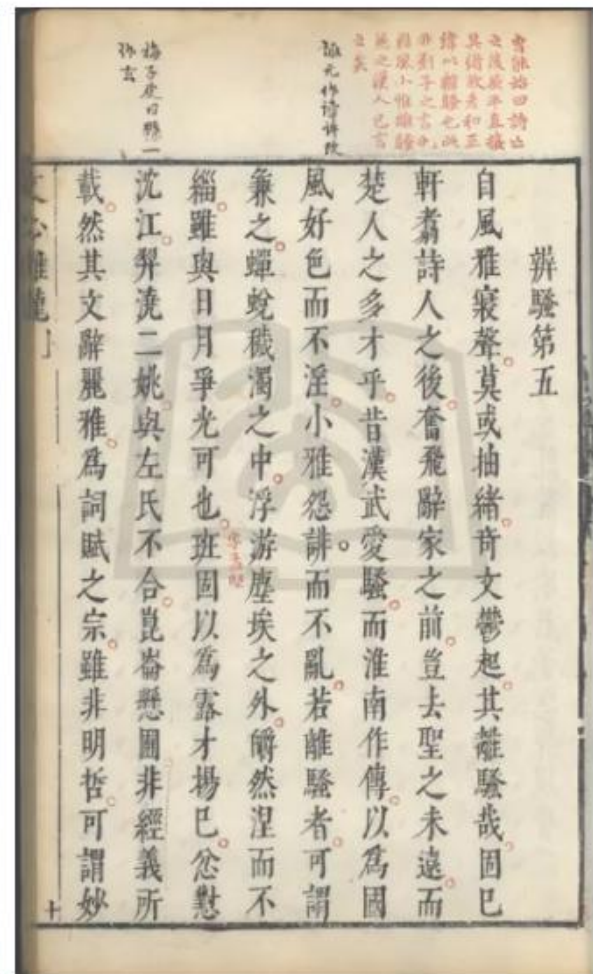 曹能始曰詩亡
之後屈平直接
故彥和正
緯以辯騷也
非劉子之言
之漢人已言
之矣
誹元作謗許改
梅子庾曰懸一
作玄
辨騷第五
自風雅寢聲莫或抽緒奇文鬱起其離騷哉固已
軒翥詩人之後奮飛辭家之前豈去聖之未遠而
楚人之多才乎昔漢武愛騷而淮南作傳以爲國
風好色而不淫小雅怨誹而不亂若離騷者可謂
兼之蟬蛻穢濁之中浮游塵埃之外皭然涅而不
緇雖與日月爭光可也班固以爲露才揚已忿懟
沈江羿澆二姚與左氏不合崑崙懸圃非經義所
載然其文辭麗雅爲詞賦之宗雖非明哲可謂妙
文心雕龍
十